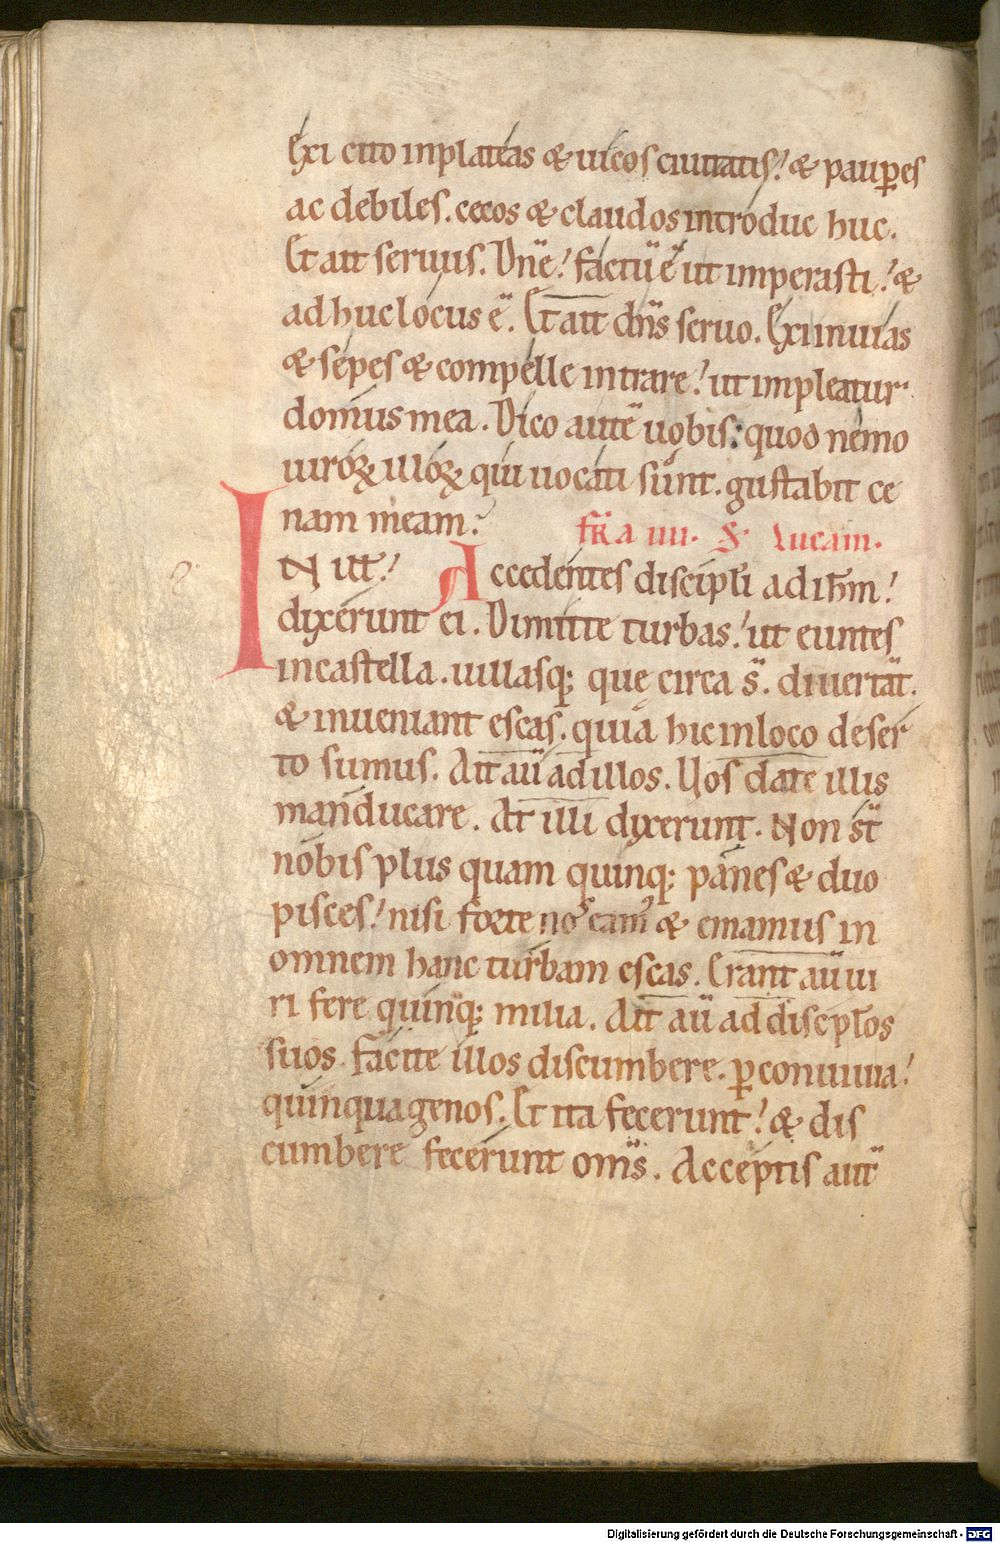 Exi cito inplateas & uicos ciuitatis. & paup̄es
ac debiles. cecos & claudos introduc huc.
Et ait seruus. Dn̄e. factū ē ut imperasti. &
adhuc locus ē. Et ait dn̄s seruo. Exi inuias
& sepes & compelle intrare. ut impleatur
domus mea. Dico autē uobis. quod nemo
uiroꝝ illoꝝ qui uocati sunt. gustabit ce
nam meam.
fr̄a iiii. S. Lucam.
IN ill̄. Accedentes discipl̄i ad ihm̄.
dixerunt ei. Dimitte turbas. ut euntes
incastella. uillasq; que circa s̄. diuertāt.
& inueniant escas. quia hic inloco deser
to sumus. Ait aū ad illos. Uos date illis
manducare. At illi dixerunt. Non st̄
nobis plus quam quinq; panes & duo
pisces. nisi forte nos eam & emamus in
omnem hanc turbam escas. Erant aū ui
ri fere quinq; milia. Ait aū ad discipl̄os
suos. facite illos discumbere. ꝑ conuiuia.
quinquagenos. Et ita fecerunt. & dis
cumbere fecerunt om̄s. Acceptis aut̄
Digitalisierung gefördert durch die Deutsche Forschungsgemeinschaft - DFG